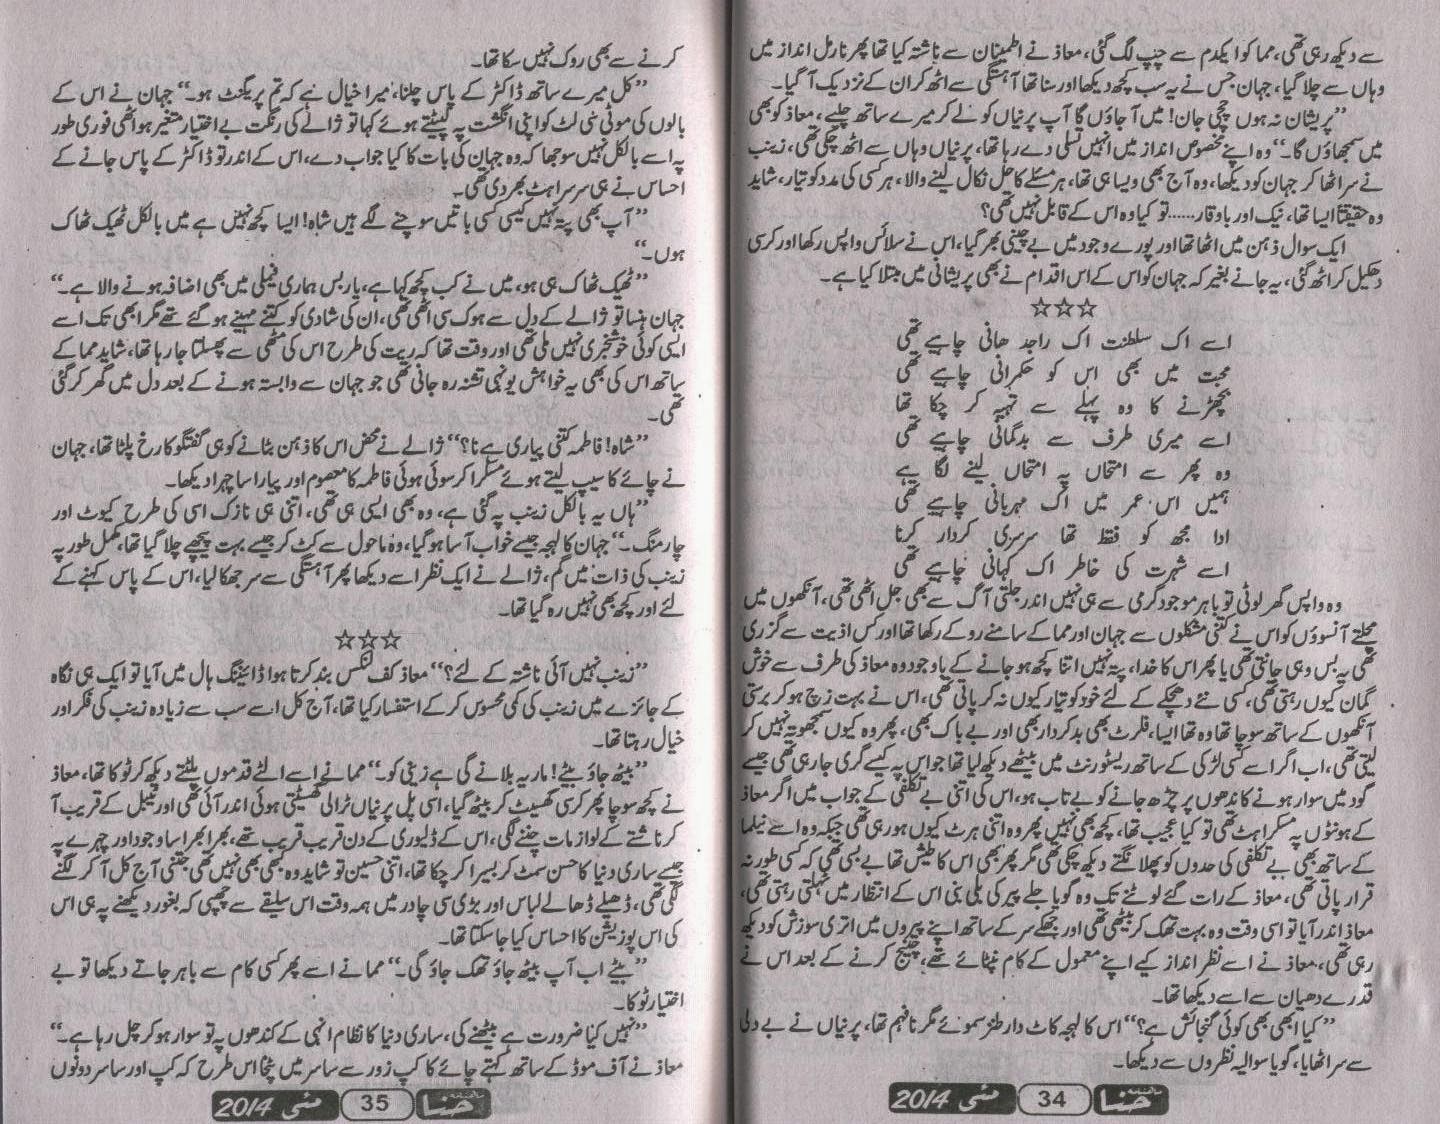 سے دیکھ رہی تھی، مما کو ایکدم سے چپ لگ گئی، معاذ نے اطمینان سے ناشتہ کیا تھا پھر نارمل انداز میں
وہاں سے چلا گیا، جہان جس نے یہ سب کچھ دیکھا اور سنا تھا آہستگی سے اٹھ کر ان کے نزدیک آ گیا۔
”پریشان نہ ہوں چچی جان! میں آ جاؤں گا آپ پرنیاں کو لے کر میرے ساتھ چلیے، معاذ کو بھی
میں سمجھاؤں گا۔“ وہ اپنے مخصوص انداز میں انہیں تسلی دے رہا تھا، پرنیاں وہاں سے اٹھ چکی تھی، زینب
نے سر اٹھا کر جہان کو دیکھا، وہ آج بھی ویسا ہی تھا، ہر مسئلے کا حل نکال لینے والا، ہر کسی کی مدد کو تیار، شاید
وہ حقیقتاً ایسا تھا، نیک اور باوقار...... تو کیا وہ اس کے قابل نہیں تھی؟
ایک سوال ذہن میں اٹھا تھا اور پورے وجود میں بے چینی بھر گیا، اس نے سلائس واپس رکھا اور کرسی
دھکیل کر اٹھ گئی، یہ جانے بغیر کہ جہان کو اس کے اس اقدام نے بھی پریشانی میں مبتلا کیا ہے۔
☆☆☆
اسے اک سلطنت اک راجدھانی چاہیے تھی
محبت میں بھی اس کو حکمرانی چاہیے تھی
بچھڑنے کا وہ پہلے سے تہیہ کر چکا تھا
اسے میری طرف سے بدگمانی چاہیے تھی
وہ پھر سے امتحاں پہ امتحاں لینے لگا ہے
ہمیں اس عمر میں اک مہربانی چاہیے تھی
ادا مجھ کو فقط تھا سرسری کردار کرنا
اسے شہرت کی خاطر اک کہانی چاہیے تھی
وہ واپس گھر لوٹی تو باہر موجود گرمی سے ہی نہیں اندر جلتی آگ سے بھی جل اٹھی تھی، آنکھوں میں
مچلتے آنسوؤں کو اس نے کتنی مشکلوں سے جہان اور مما کے سامنے روکے رکھا تھا اور کس اذیت سے گزری
تھی یہ بس وہی جانتی تھی یا پھر اس کا خدا، پتہ نہیں اتنا کچھ ہو جانے کے باوجود وہ معاذ کی طرف سے خوش
گمان کیوں رہتی تھی، کسی نئے دھچکے کے لئے خود کو تیار کیوں نہ کر پاتی تھی، اس نے بہت زچ ہو کر برستی
آنکھوں کے ساتھ سوچا تھا وہ تھا ایسا، فلرٹ بھی بدکردار بھی اور بے باک بھی، پھر وہ کیوں سمجھوتہ نہیں کر
لیتی تھی، اب اگر اسے کسی لڑکی کے ساتھ ریسٹورنٹ میں بیٹھے دیکھ لیا تھا جو اس پہ کیسے گری جا رہی تھی جیسے
گود میں سوار ہونے کاندھوں پر چڑھ جانے کو بے تاب ہو، اس کی اتنی بے تکلفی کے جواب میں اگر معاذ
کے ہونٹوں پہ مسکراہٹ تھی تو کیا عجیب تھا، کچھ بھی نہیں پھر وہ اتنی ہرٹ کیوں ہو رہی تھی جبکہ وہ اسے نیلما
کے ساتھ بھی بے تکلفی کی حدوں کو پھلانگتے دیکھ چکی تھی مگر پھر بھی اس کا طیش تھا بے بسی تھی کہ کسی طور نہ
قرار پاتی تھی، معاذ کے رات گئے لوٹنے تک وہ گویا جلے پیر کی بلی بنی اس کے انتظار میں ٹہلتی رہتی تھی،
معاذ اندر آیا تو اسی وقت وہ بہت تھک کر بیٹھی تھی اور جھکے سر کے ساتھ اپنے پیروں میں اتری سوزش کو دیکھ
رہی تھی، معاذ نے اسے نظر انداز کیے اپنے معمول کے کام نپٹائے تھے، چینج کرنے کے بعد اس نے
قدرے دھیان سے اسے دیکھا تھا۔
”کیا ابھی بھی کوئی گنجائش ہے؟“ اس کا لہجہ کاٹ دار طنز سموئے مگر نافہم تھا، پرنیاں نے بے دلی
سے سر اٹھایا، گویا سوالیہ نظروں سے دیکھا۔
ماہنامہ حنا 34 مئی 2014
کرنے سے بھی روک نہیں سکا تھا۔
”کل میرے ساتھ ڈاکٹر کے پاس چلنا، میرا خیال ہے کہ تم پریگننٹ ہو۔“ جہان نے اس کے
بالوں کی موٹی سی لٹ کو اپنی انگشت پہ لپیٹتے ہوئے کہا تو ژالے کی رنگت بے اختیار متغیر ہو اٹھی فوری طور
پہ اسے بالکل نہیں سوجھا کہ وہ جہان کی بات کا کیا جواب دے، اس کے اندر تو ڈاکٹر کے پاس جانے کے
احساس نے ہی سرسراہٹ بھر دی تھی۔
”آپ بھی پتہ نہیں کیسی کسی باتیں سوچنے لگے ہیں شاہ! ایسا کچھ نہیں ہے میں بالکل ٹھیک ٹھاک
ہوں۔“
”ٹھیک ٹھاک ہی ہو، میں نے کب کچھ کہا ہے، یار بس ہماری فیملی میں بھی اضافہ ہونے والا ہے۔“
جہان ہنسا تو ژالے کے دل سے ہوک سی اٹھی تھی، ان کی شادی کو کتنے مہینے ہو گئے تھے مگر ابھی تک اسے
ایسی کوئی خوشخبری نہیں ملی تھی اور وقت تھا کہ ریت کی طرح اس کی مٹھی سے پھسلتا جا رہا تھا، شاید مما کے
ساتھ اس کی بھی یہ خواہش یونہی تشنہ رہ جانی تھی جو جہان سے وابستہ ہونے کے بعد دل میں گھر کر گئی
تھی۔
”شاہ! فاطمہ کتنی پیاری ہے نا؟“ ژالے نے محض اس کا ذہن بٹانے کو ہی گفتگو کا رخ پلٹا تھا، جہان
نے چائے کا سیپ لیتے ہوئے مسکرا کر سوئی ہوئی فاطمہ کا معصوم اور پیارا سا چہرا دیکھا۔
”ہاں یہ بالکل زینب پہ گئی ہے، وہ بھی ایسی ہی تھی، اتنی ہی نازک اسی کی طرح کیوٹ اور
چارمنگ۔“ جہان کا لہجہ جیسے خواب آسا ہو گیا، وہ ماحول سے کٹ کر جیسے بہت پیچھے چلا گیا تھا، مکمل طور پہ
زینب کی ذات میں گم، ژالے نے ایک نظر اسے دیکھا پھر آہستگی سے سر جھکا لیا، اس کے پاس کہنے کے
لئے اور کچھ بھی نہیں رہ گیا تھا۔
☆☆☆
”زینب نہیں آئی ناشتہ کے لئے؟“ معاذ کف لنکس بند کرتا ہوا ڈائیننگ ہال میں آیا تو ایک ہی نگاہ
کے جائزے میں زینب کی کمی محسوس کر کے استفسار کیا تھا، آج کل اسے سب سے زیادہ زینب کی فکر اور
خیال رہتا تھا۔
”بیٹھ جاؤ بیٹے! ماریہ بلانے گئی ہے زینی کو۔“ مما نے اسے الٹے قدموں پلٹتے دیکھ کر ٹوکا تھا، معاذ
نے کچھ سوچا پھر کرسی گھسیٹ کر بیٹھ گیا، اسی پل پرنیاں ٹرالی گھسیٹتی ہوئی اندر آئی تھی اور ٹیبل کے قریب آ
کر ناشتے کے لوازمات چننے لگی، اس کے ڈلیوری کے دن قریب قریب تھے، بھرا بھرا سا وجود اور چہرے پہ
جیسے ساری دنیا کا حسن سمٹ کر بسیرا کر چکا تھا، اتنی حسین تو شاید وہ کبھی بھی نہیں تھی جتنی آج کل آ کر لگنے
لگی تھی، ڈھیلے ڈھالے لباس اور بڑی سی چادر میں ہمہ وقت اس سلیقے سے چھپی کہ بغور دیکھنے پہ ہی اس
کی اس پوزیشن کا احساس کیا جا سکتا تھا۔
”بیٹے اب آپ بیٹھ جاؤ تھک جاؤ گی۔“ مما نے اسے پھر کسی کام سے باہر جاتے دیکھا تو بے
اختیار ٹوکا۔
”نہیں کیا ضرورت ہے بیٹھنے کی، ساری دنیا کا نظام انہی کے کندھوں پہ تو سوار ہو کر چل رہا ہے۔“
معاذ نے آف موڈ کے ساتھ کہتے چائے کا کپ زور سے ساسر میں پٹخا اس طرح کہ کپ اور ساسر دونوں
ماہنامہ حنا 35 مئی 2014